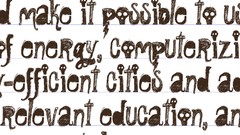 d make it possible to us
of energy, computerizi
y-efficient cities and ad
relevant education, an